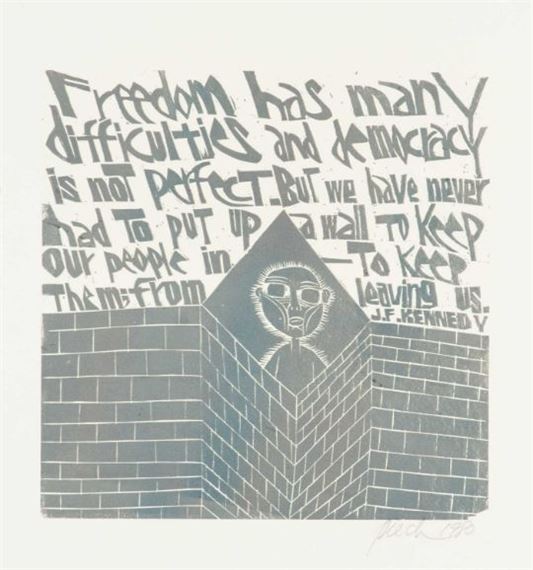 Freedom has many
difficulties and democracy
is not perfect. But we have never
had to put up a wall to keep
our people in — to keep
them: from leaving us.
J.F. KENNEDY
Peech 1980